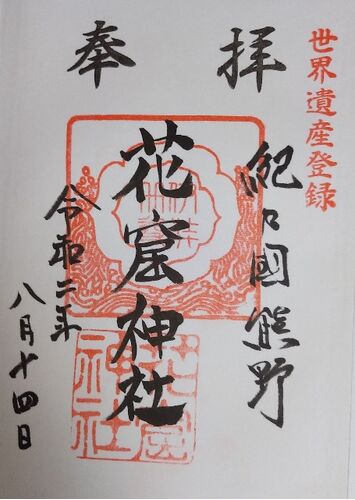 世界遺産登録
奉拝
紀乃國熊野
花窟神社
令和二年
八月十四日
花窟神社